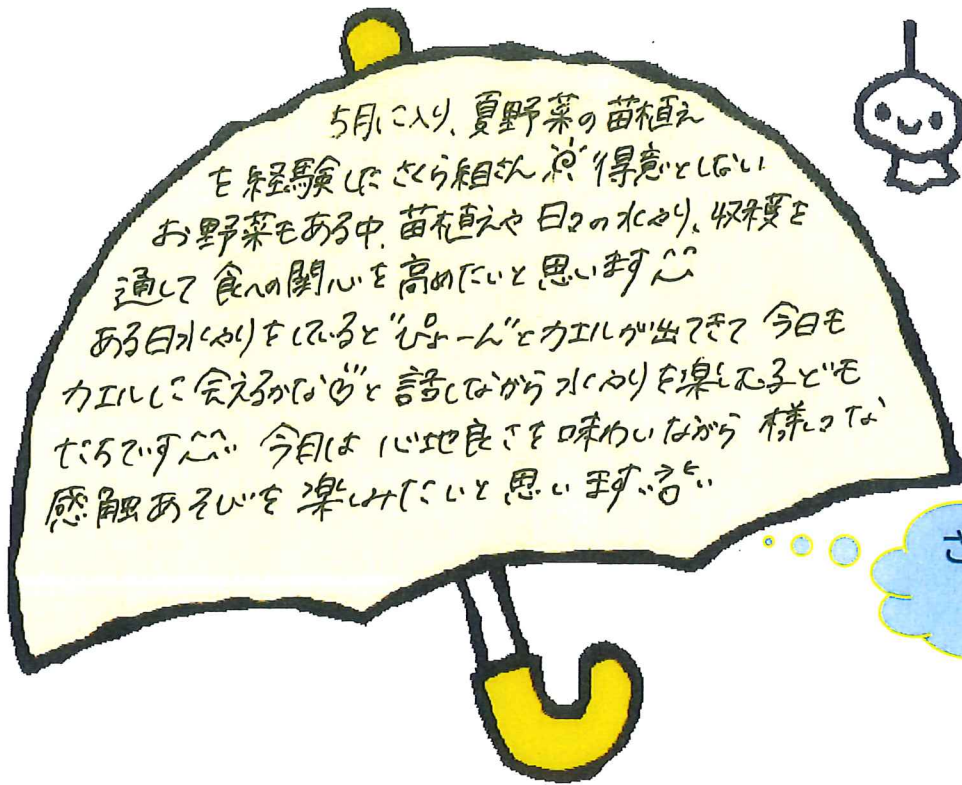 5月に入り、夏野菜の苗植え
を経験したさくら組さん 得意としない
お野菜もある中、苗植えや日々の水やり、収穫を
通して食への関心を高めたいと思います
ある日水やりをしていると"ぴょーん"とカエルが出てきて 今日も
カエルに会えるかな♡と話しながら水やりを楽しむ子ども
たちです 今月は心地良さを味わいながら様々な
感触あそびを楽しみたいと思います
さ